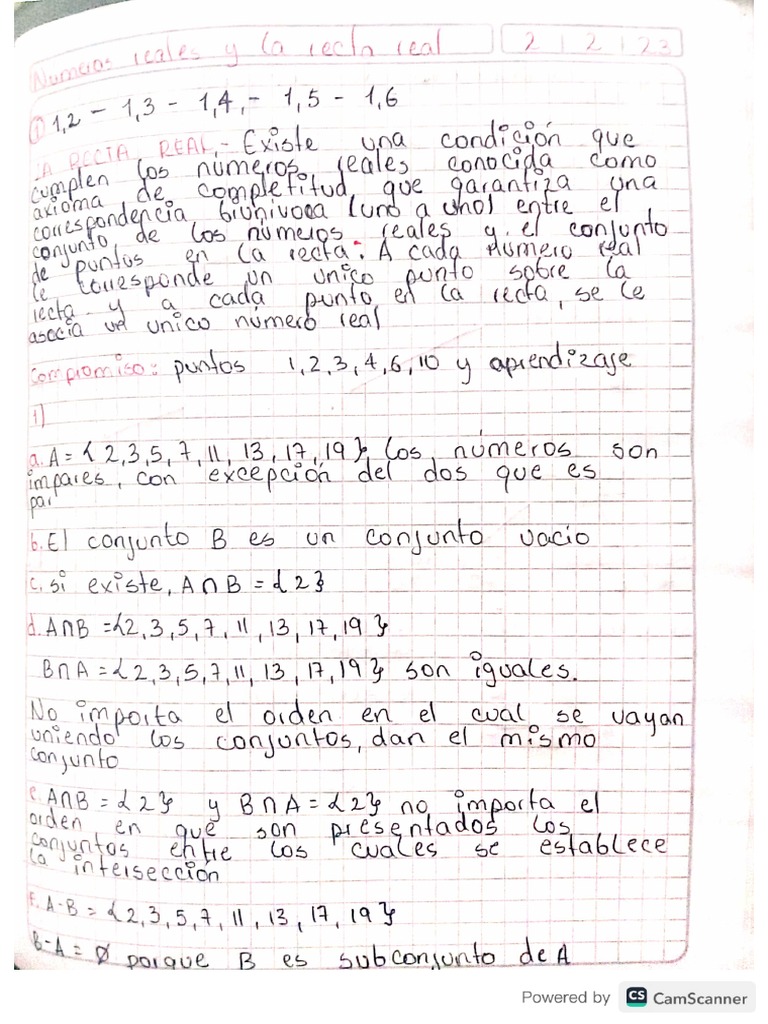 Numeros reales y la recta real 2 | 2 | 23
① 1,2 - 1,3 - 1,4,- 1,5 - 1,6
LA RECTA REAL.- Existe una condición que
cumplen los números reales conocida como
axioma de completitud, que garantiza una
correspondencia biunivoca (uno a uno) entre el
conjunto de los números reales y el conjunto
de puntos en la recta: A cada número real
le corresponde un unico punto sobre la
recta y a cada punto en la recta, se le
asocia un unico número real
Compromiso: puntos 1,2,3,4,6,10 y aprendizaje
1)
a. A = { 2,3,5,7,11,13,17,19 }, los números son
impares, con excepción del dos que es
par
b. El conjunto B es un conjunto vacio
c. si existe, A∩B = {2}
d. A∩B = {2,3,5,7,11,13,17,19}
B∩A = {2,3,5,7,11,13,17,19} son iguales.
No importa el orden en el cual se vayan
uniendo los conjuntos, dan el mismo
conjunto
e. A∩B = {2} y B∩A = {2} no importa el
orden en que son presentados los
conjuntos entre los cuales se establece
la intersección
F. A-B = {2,3,5,7,11,13,17,19}
B-A = ∅ porque B es subconjunto de A
Powered by CS CamScanner